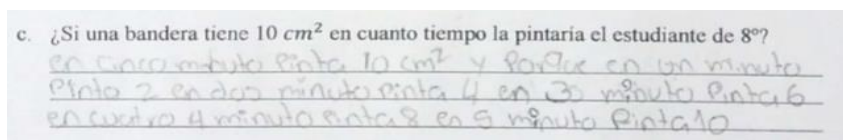 c. ¿Si una bandera tiene 10 cm² en cuanto tiempo la pintaría el estudiante de 8°?
en cinco minuto Pinta 10 cm² y Porque en un minuto
Pinta 2 en dos minuto pinta 4 en 3 minuto Pinta 6
en cuatro 4 minuto pinta 8 en 5 minuto Pinta 10